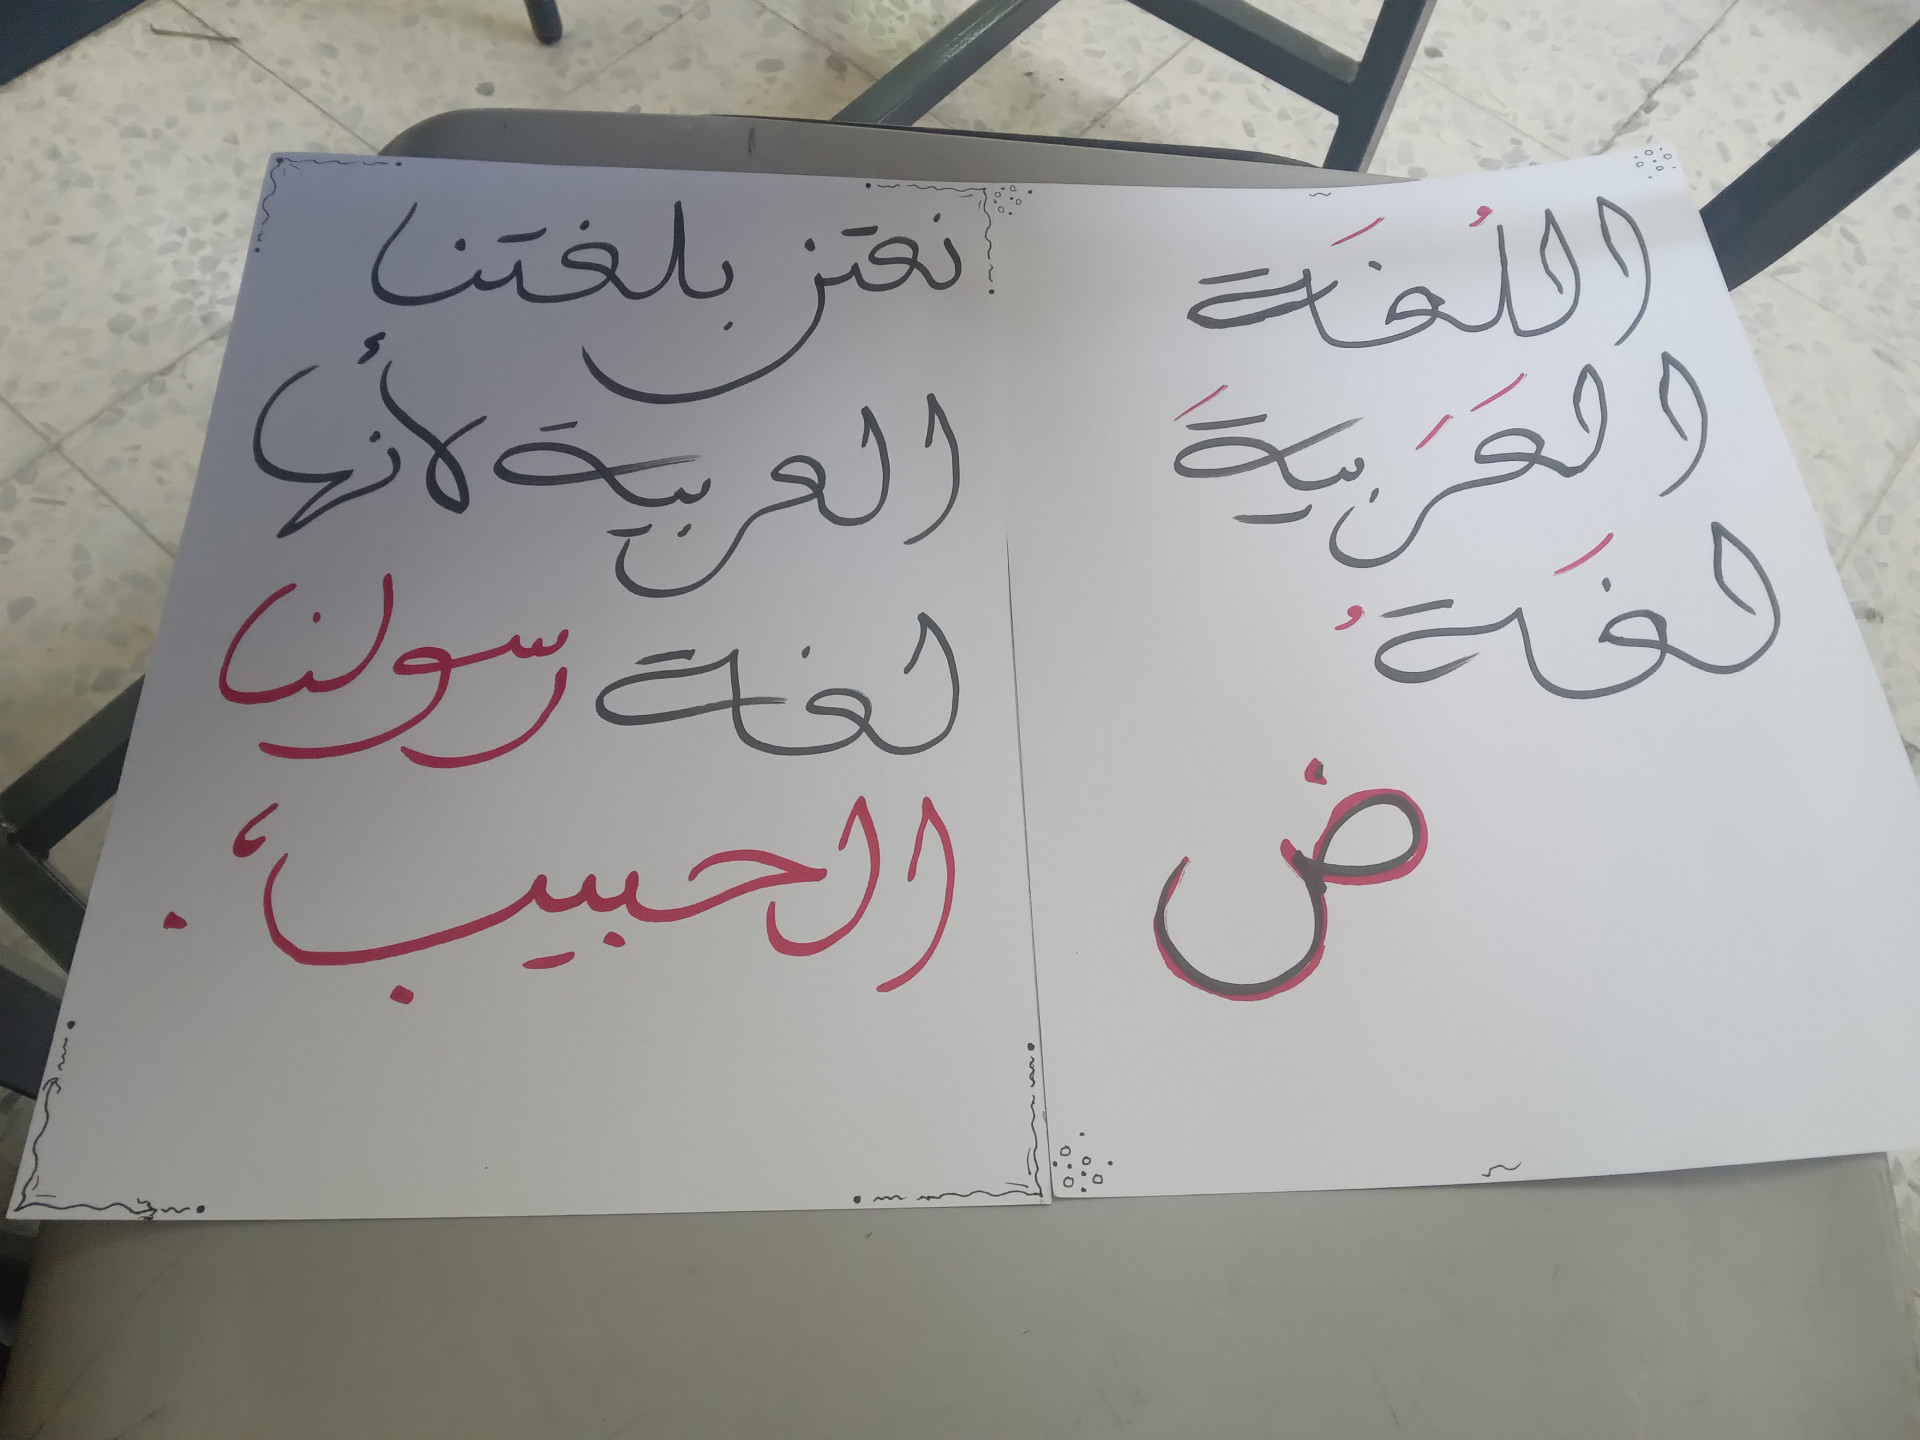 اللُغَة
العَرَبيةَ
لغَةُ
ض
نعتز بلغتنا
العربية لأنها
لغة رسولنا
الحبيب،.